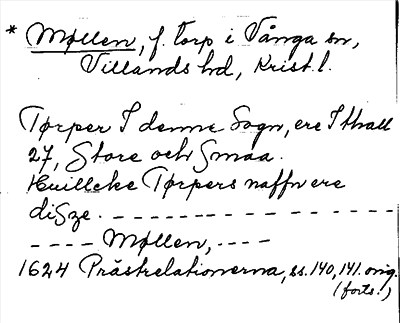 * Møllen, f. torp i Vånga sn,
Villands hd, Krist.l.
Tørper I denne Sogn, ere I thall
27, Store och Smaa.
Huilleke Tørpers naffn ere
diSze. - - - - - - - - - - - - - - -
- - - - Møllen, - - - -
1624 Prästrelationerna, ss. 140, 141. orig.
(forts.)